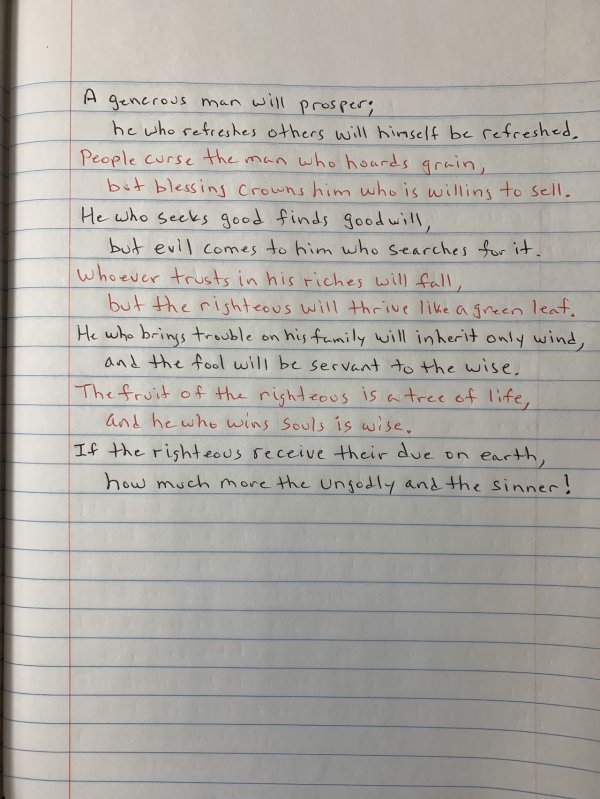 A generous man will prosper;
he who refreshes others will himself be refreshed.
People curse the man who hoards grain,
but blessing crowns him who is willing to sell.
He who seeks good finds goodwill,
but evil comes to him who searches for it.
Whoever trusts in his riches will fall,
but the righteous will thrive like a green leaf.
He who brings trouble on his family will inherit only wind,
and the fool will be servant to the wise.
The fruit of the righteous is a tree of life,
and he who wins souls is wise.
If the righteous receive their due on earth,
how much more the ungodly and the sinner!